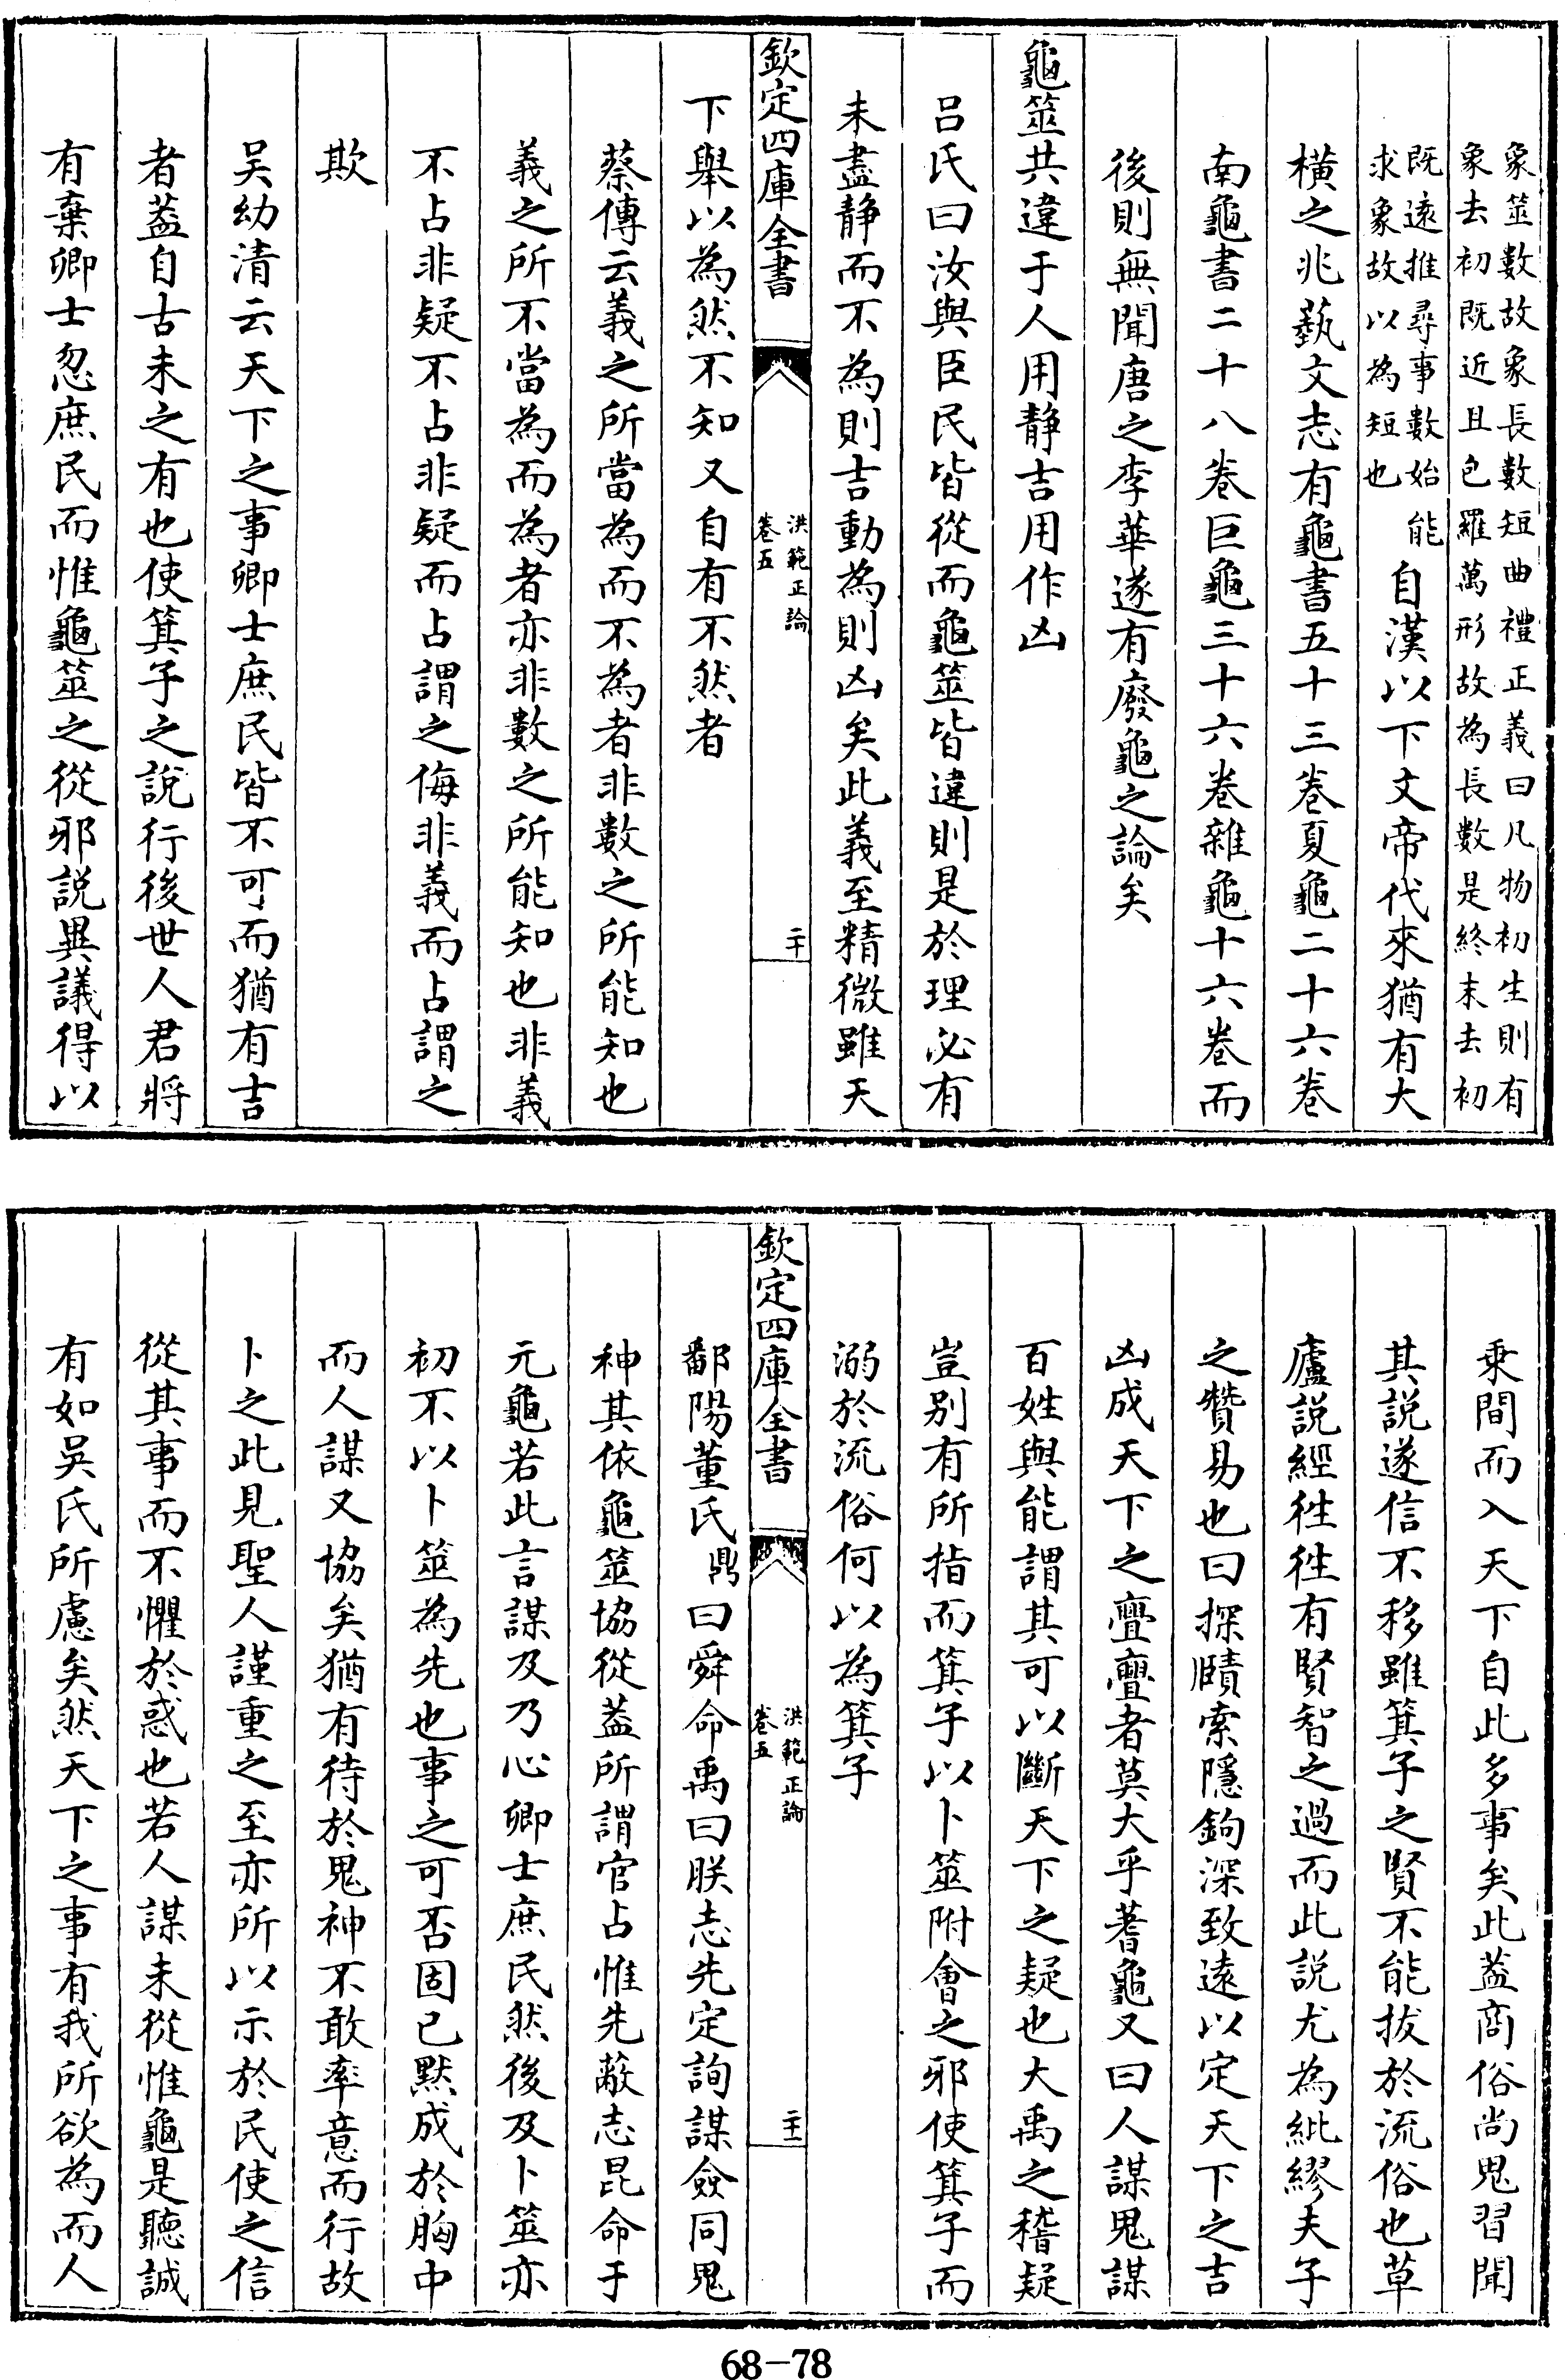 象筮數故象長數短曲禮正義曰凡物初生則有
象去初既近且包羅萬形故為長數是終末去初
既遠推尋事數始能
求象故以為短也
自漢以下文帝代來猶有大
橫之兆蓺文志有龜書五十三卷夏龜二十六卷
南龜書二十八卷巨龜三十六卷雜龜十六卷而
後則無聞唐之李華遂有廢龜之論矣
龜筮共違于人用静吉用作凶
吕氏曰汝與臣民皆從而龜筮皆違則是於理必有
未盡静而不為則吉動為則凶矣此義至精微雖天
欽定四庫全書
洪範正論
卷五
二十
下舉以為然不知又自有不然者
蔡傳云義之所當為而不為者非數之所能知也
義之所不當為而為者亦非數之所能知也非義
不占非疑不占非疑而占謂之侮非義而占謂之
欺
吴幼清云天下之事卿士庶民皆不可而猶有吉
者葢自古未之有也使箕子之說行後世人君將
有棄卿士忽庶民而惟龜筮之從邪説異議得以
乘間而入天下自此多事矣此葢商俗尚鬼習聞
其説遂信不移雖箕子之賢不能拔於流俗也草
廬説經徃徃有賢智之過而此説尤為紕繆夫子
之贊易也曰探賾索隠鉤深致遠以定天下之吉
凶成天下之亹亹者莫大乎蓍龜又曰人謀鬼謀
百姓與能謂其可以斷天下之疑也大禹之稽疑
豈别有所指而箕子以卜筮附會之邪使箕子而
溺於流俗何以為箕子
欽定四庫全書
洪範正論
卷五
二十一
鄱陽董氏鼎曰舜命禹曰朕志先定詢謀僉同鬼
神其依龜筮協從葢所謂官占惟先蔽志昆命于
元龜若此言謀及乃心卿士庶民然後及卜筮亦
初不以卜筮為先也事之可否固已默成於胸中
而人謀又協矣猶有待於鬼神不敢率意而行故
卜之此見聖人謹重之至亦所以示於民使之信
從其事而不懼於惑也若人謀未從惟龜是聽誠
有如吴氏所慮矣然天下之事有我所欲為而人
68-78